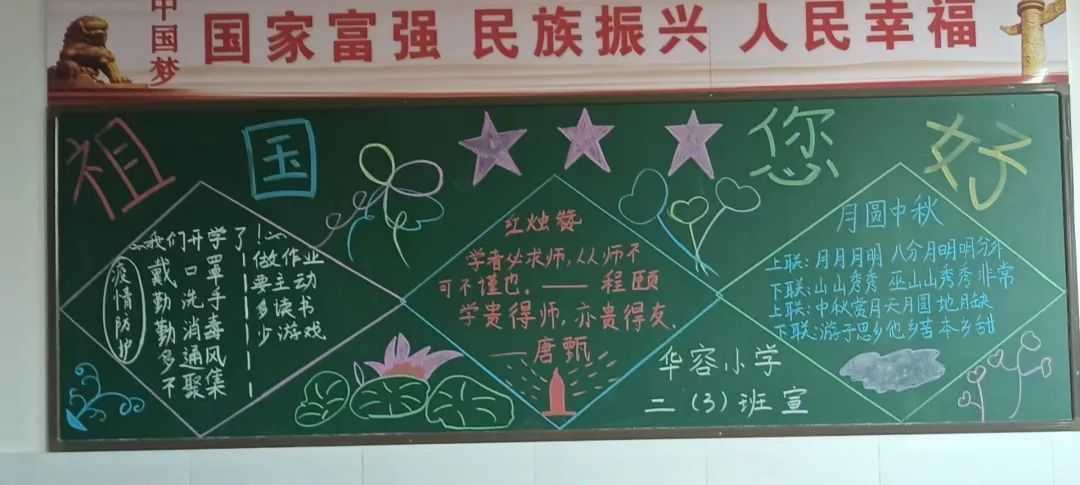 中国梦
国家富强 民族振兴 人民幸福
祖国您好
我们开学了!
疫情防护
戴口罩
勤洗手
勤消毒
多通风
不聚集
做作业
要主动
多读书
少游戏
红烛赞
学者必求师,从师不
可不谨也。——程颐
学贵得师,亦贵得友。
——唐甄
月圆中秋
上联:月月月明 八分月明明分外
下联:山山秀秀 巫山山秀秀非常
上联:中秋赏月天月圆地月缺
下联:游子思乡他乡苦本乡甜
华容小学
二(3)班宣